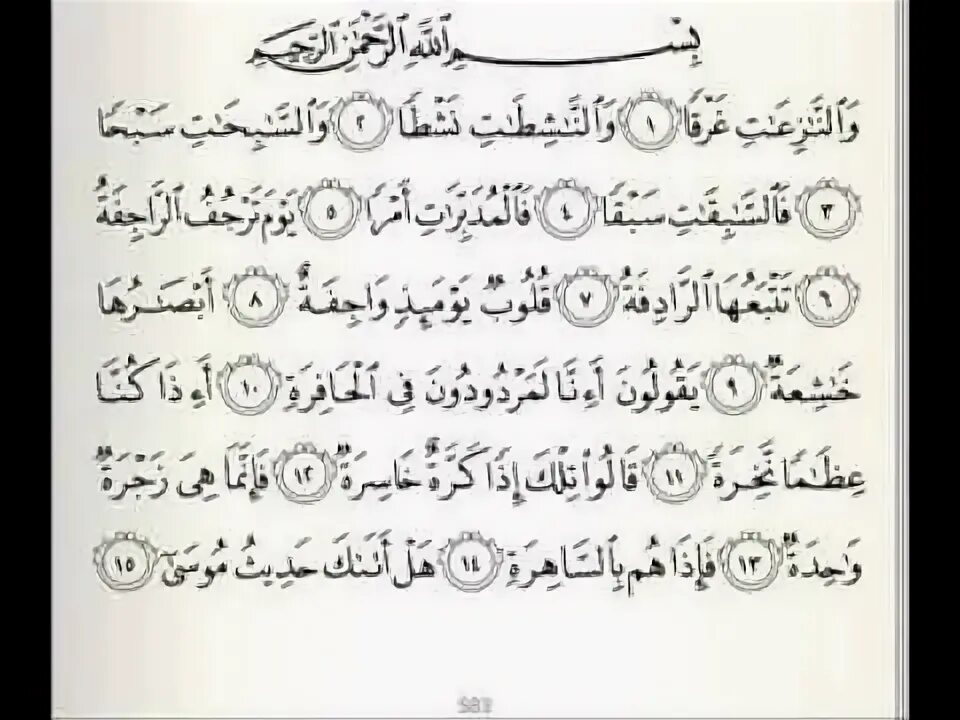 بِسْمِ ٱللَّهِ ٱلرَّحْمَٰنِ ٱلرَّحِيمِ
وَٱلنَّٰزِعَٰتِ غَرْقًا ١ وَٱلنَّٰشِطَٰتِ نَشْطًا ٢ وَٱلسَّٰبِحَٰتِ سَبْحًا
٣ فَٱلسَّٰبِقَٰتِ سَبْقًا ٤ فَٱلْمُدَبِّرَٰتِ أَمْرًا ٥ يَوْمَ تَرْجُفُ ٱلرَّاجِفَةُ
٦ تَتْبَعُهَا ٱلرَّادِفَةُ ٧ قُلُوبٌ يَوْمَئِذٍ وَاجِفَةٌ ٨ أَبْصَٰرُهَا
خَٰشِعَةٌ ٩ يَقُولُونَ أَءِنَّا لَمَرْدُودُونَ فِى ٱلْحَافِرَةِ ١٠ أَءِذَا كُنَّا
عِظَٰمًا نَّخِرَةً ١١ قَالُوا۟ تِلْكَ إِذًا كَرَّةٌ خَاسِرَةٌ ١٢ فَإِنَّمَا هِىَ زَجْرَةٌ
وَٰحِدَةٌ ١٣ فَإِذَا هُم بِٱلسَّاهِرَةِ ١٤ هَلْ أَتَىٰكَ حَدِيثُ مُوسَىٰٓ ١٥